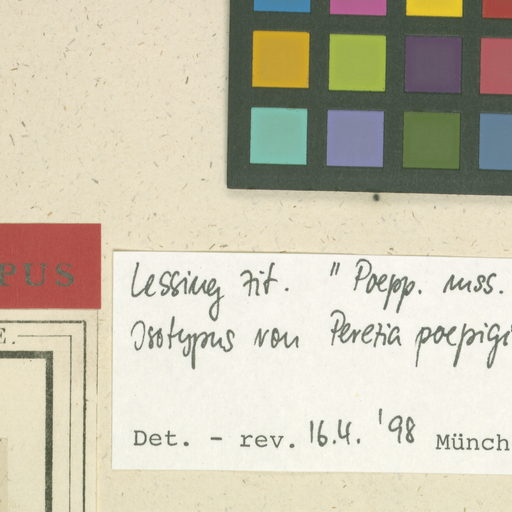 PUS
E.
Lessing zit. " Poepp. mss.
Isotypus von Perezia poepigi
Det. - rev. 16.4. '98 Münch